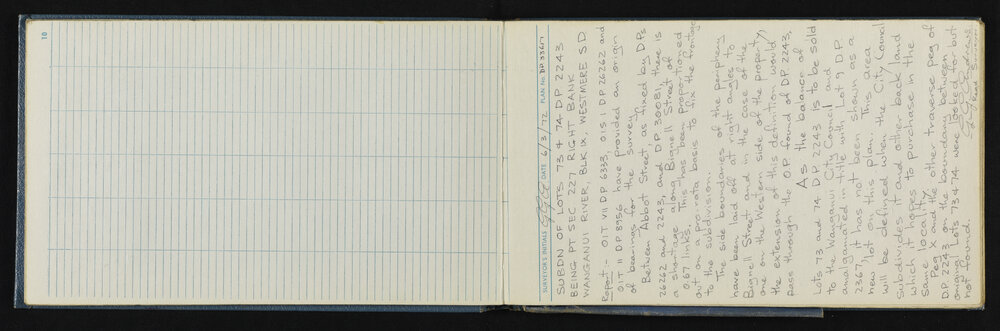 10
SURVEYOR'S INITIALS DATE 6/3/72 PLAN No. DP 33617
SUBDN OF LOTS 73 & 74 DP 2243
BEING PT SEC 227 RIGHT BANK
WANGANUI RIVER, BLK IX, WESTMERE SD
Report:- OIT VII DP 6333, OIS I DP 26262 and
OIT II DP 8956 have provided an origin
of bearings for the survey.
Between Abbot Street as fixed by DPs
26262 and 2243, and DP 30081, there is
a shortage along Bignell Street of
0.67 links. This has been proportioned
out on a pro rata basis to fix the frontage
to the subdivision.
The side boundaries of the periphery
have been laid off at right angles to
Bignell Street and in the case of the
one on the Western side of the property
the extension of this definition would
pass through the O.P. found of DP 2243.
As the balance of
Lots 73 and 74 DP 2243 is to be sold
to the Wanganui City Council and
amalgamated in title with Lot 9 DP
2367, it has not been shown as a
new lot on this plan. This area
will be defined when the City Council
subdivides it and other back land
which it hopes to purchase in the
same locality.
Peg X and the other traverse peg of
DP 2243 on the boundary between
original Lots 73 & 74 were looked for but
not found.
Regd Surveyor